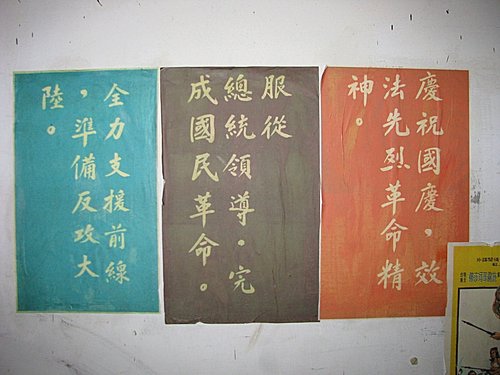 慶祝國慶，效
法先烈革命精
神。
服從
總統領導，完
成國民革命。
全力支援前線
，準備反攻大
陸。